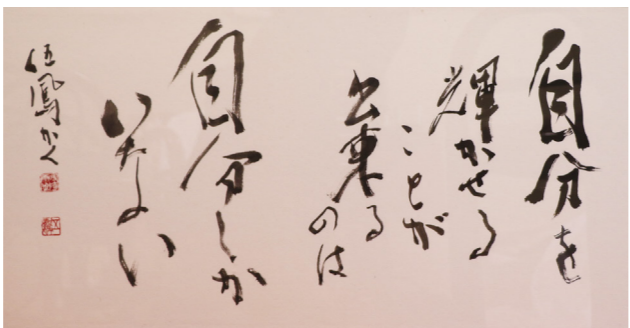 自分を
輝かせる
ことが
出来る
のは
自分しか
いない
伍鳳かく